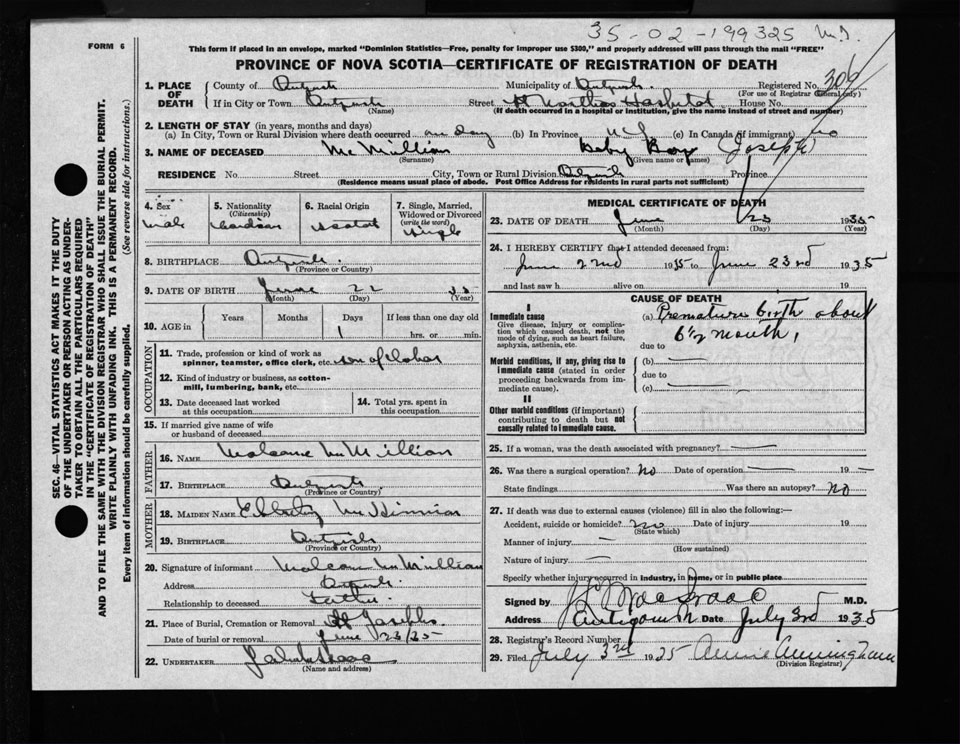 35-02-199325
FORM 6
This form if placed in an envelope, marked "Dominion Statistics—Free, penalty for improper use $300," and properly addressed will pass through the mail "FREE"
PROVINCE OF NOVA SCOTIA—CERTIFICATE OF REGISTRATION OF DEATH
1. PLACE OF DEATH
County of
Municipality of
Registered No. 306
(For use of Registrar General only)
If in City or Town
(Name)
Street St Marthas Hospital House No.
(If death occurred in a hospital or institution, give the name instead of street and number)
2. LENGTH OF STAY (in years, months and days)
(a) In City, Town or Rural Division where death occurred one day (b) In Province (c) In Canada (if immigrant) no
3. NAME OF DECEASED McMillian Baby Boy (Joseph)
(Surname) (Given name or names)
RESIDENCE No. Street City, Town or Rural Division Province
(Residence means usual place of abode. Post Office Address for residents in rural parts not sufficient)
4. Sex
Male
5. Nationality
(Citizenship)
6. Racial Origin
7. Single, Married, Widowed or Divorced
(write the word)
Single
8. BIRTHPLACE
(Province or Country)
9. DATE OF BIRTH June 22 35
(Month) (Day) (Year)
10. AGE in
Years Months Days If less than one day old
1 hrs. or min.
OCCUPATION
11. Trade, profession or kind of work as spinner, teamster, office clerk, etc. son of labor
12. Kind of industry or business, as cotton-mill, lumbering, bank, etc.
13. Date deceased last worked at this occupation
14. Total yrs. spent in this occupation
15. If married give name of wife or husband of deceased
FATHER
16. NAME
17. BIRTHPLACE
(Province or Country)
MOTHER
18. MAIDEN NAME
19. BIRTHPLACE
(Province or Country)
20. Signature of informant
Address
Relationship to deceased Father
21. Place of Burial, Cremation or Removal St Josephs
Date of burial or removal June 23/35
22. UNDERTAKER
(Name and address)
MEDICAL CERTIFICATE OF DEATH
23. DATE OF DEATH June 23 1935
(Month) (Day) (Year)
24. I HEREBY CERTIFY that I attended deceased from:
June 22nd 1935 to June 23rd 1935
and last saw h alive on 19
CAUSE OF DEATH
I
Immediate cause
Give disease, injury or complication which caused death, not the mode of dying, such as heart failure, asphyxia, asthenia, etc.
(a) Premature birth about
6½ month,
due to
Morbid conditions, if any, giving rise to immediate cause (stated in order proceeding backwards from immediate cause).
(b)
due to
(c)
II
Other morbid conditions (if important) contributing to death but not causally related to immediate cause.
25. If a woman, was the death associated with pregnancy?
26. Was there a surgical operation? No Date of operation 19
State findings Was there an autopsy? No
27. If death was due to external causes (violence) fill in also the following:—
Accident, suicide or homicide? no Date of injury 19
(State which)
Manner of injury
(How sustained)
Nature of injury
Specify whether injury occurred in industry, in home, or in public place
Signed by M.D.
Address Antigonish Date July 3rd 1935
28. Registrar's Record Number
29. Filed July 3rd 1935 Annie Cunningham
(Division Registrar)
SEC. 46—VITAL STATISTICS ACT MAKES IT THE DUTY
OF THE UNDERTAKER OR PERSON ACTING AS UNDER-
TAKER TO OBTAIN ALL THE PARTICULARS REQUIRED
IN THE "CERTIFICATE OF REGISTRATION OF DEATH"
AND TO FILE THE SAME WITH THE DIVISION REGISTRAR WHO SHALL ISSUE THE BURIAL PERMIT.
WRITE PLAINLY WITH UNFADING INK. THIS IS A PERMANENT RECORD.
Every item of information should be carefully supplied. (See reverse side for instructions.)